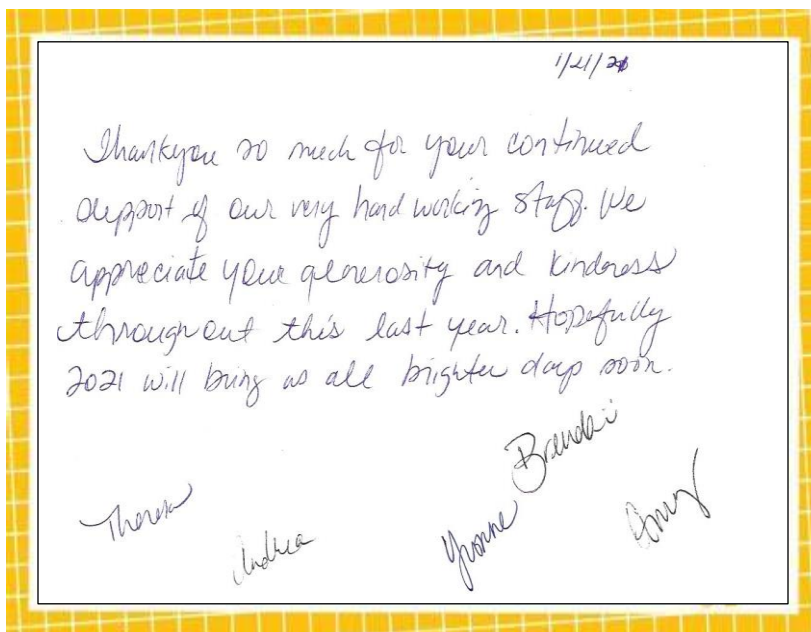 1/21/21
Thankyou so much for your continued
support of our very hard working staff. We
appreciate your generosity and kindness
throughout this last year. Hopefully
2021 will bring us all brighter days soon.
Brenda
Theresa
Yvonne
Amy
Andrea